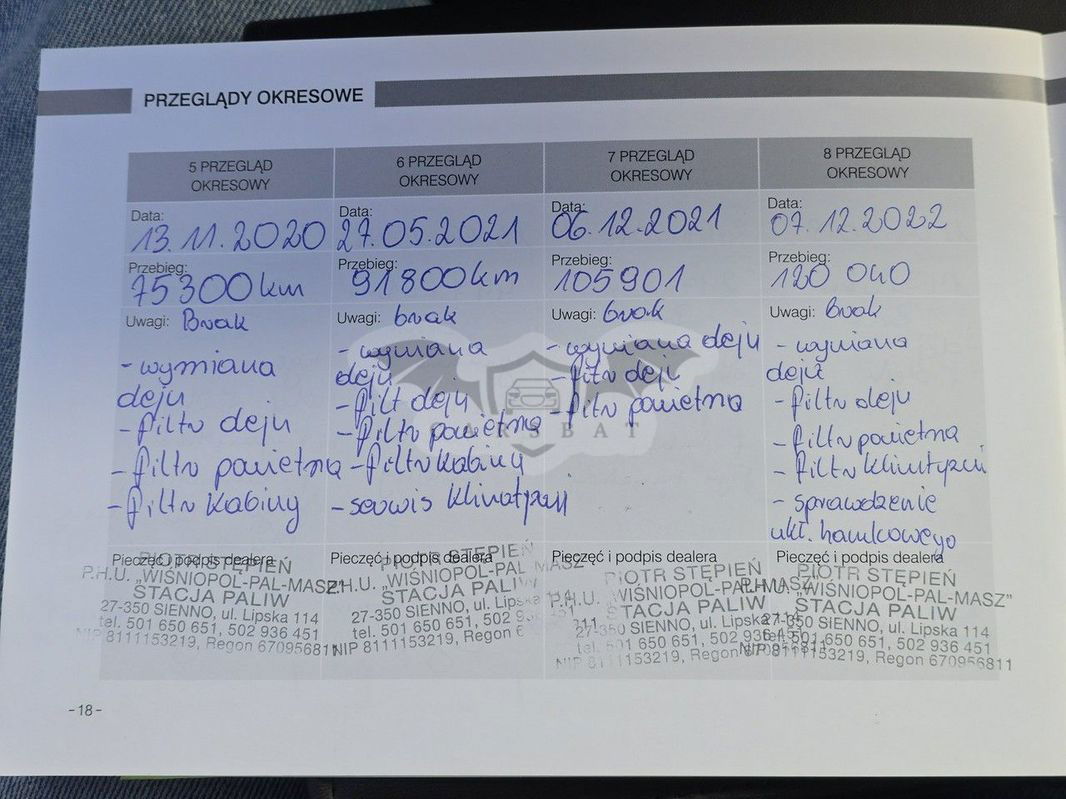 PRZEGLĄDY OKRESOWE
5 PRZEGLĄD
OKRESOWY
Data:
13.11.2020
Przebieg:
75300 km
Uwagi: Brak
- wymiana
oleju
- filtr oleju
- filtr powietrza
- filtr kabiny
Pieczęć i podpis dealera
PIOTR STĘPIEŃ
P.H.U. „WIŚNIOPOL-PAL-MASZ"
STACJA PALIW
27-350 SIENNO, ul. Lipska 114
tel. 501 650 651, 502 936 451
NIP 8111153219, Regon 670956811
6 PRZEGLĄD
OKRESOWY
Data:
27.05.2021
Przebieg:
91800 km
Uwagi: brak
- wymiana
oleju
- filt oleju
- filtr powietrza
- filtr kabiny
- serwis klimatyzacji
Pieczęć i podpis dealera
STĘPIEŃ
P.H.U. „WIŚNIOPOL-PAL-MASZ
STACJA PALIW
27-350 SIENNO, ul. Lipska
tel. 501 650 651, 502
NIP 8111153219, Regon 6
7 PRZEGLĄD
OKRESOWY
Data:
06.12.2021
Przebieg:
105901
Uwagi: brak
- wymiana oleju
- filtr oleju
- filtr powietrza
Pieczęć i podpis dealera
PIOTR STĘPIEŃ
P.H.U. „WIŚNIOPOL-PAL-MASZ
STACJA PALIW
27-350 SIENNO, ul. Lipska
tel. 501 650 651, 502 936 451
NIP 8111153219, Regon
8 PRZEGLĄD
OKRESOWY
Data:
07.12.2022
Przebieg:
120 040
Uwagi: brak
- wymiana
oleju
- filtr oleju
- filtr powietrza
- filtr klimatyzacji
- sprawdzenie
ukł. hamulcowego
Pieczęć i podpis dealera
PIOTR STĘPIEŃ
P.H.U. „WIŚNIOPOL-PAL-MASZ"
STACJA PALIW
27-350 SIENNO, ul. Lipska 114
tel. 501 650 651, 502 936 451
NIP 8111153219, Regon 670956811
CARSBAT
-18-